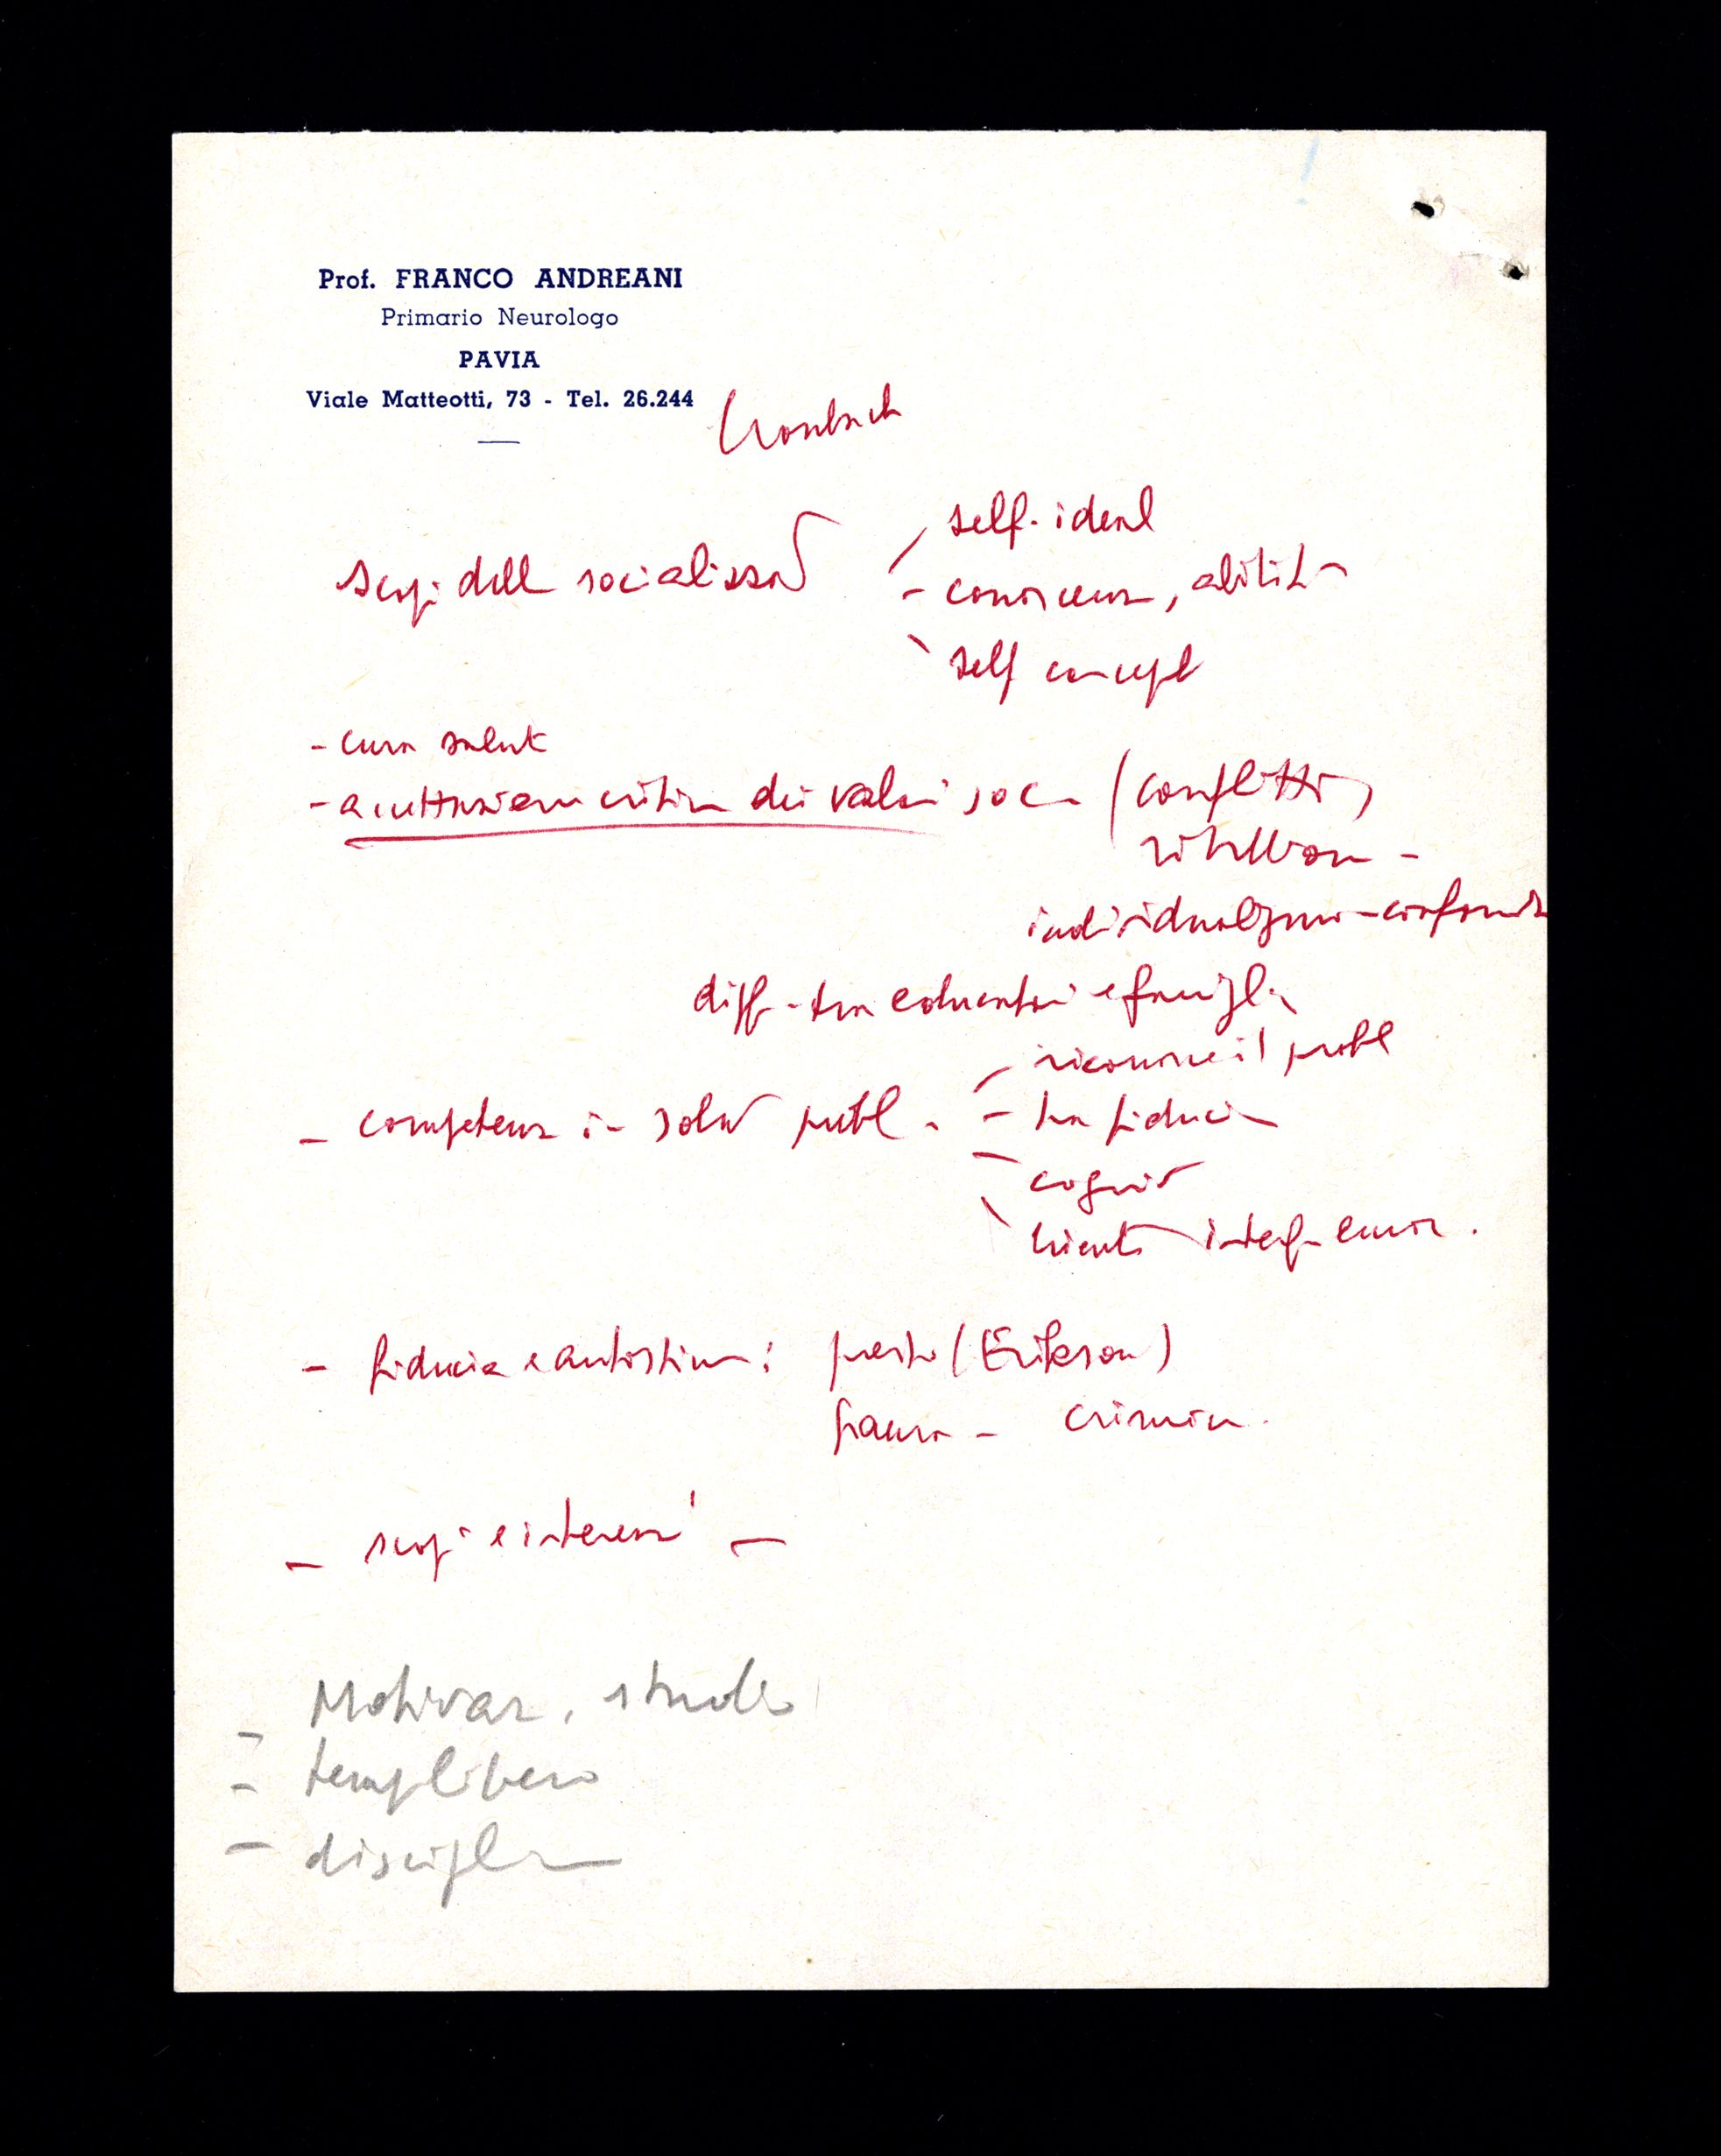 Prof. FRANCO ANDREANI
Primario Neurologo
PAVIA
Viale Matteotti, 73 - Tel. 26.244
Cronbach
scopi dell socializzaz
self-ideal
- conoscenza, abilità
self concept
- cura salute
- accettazione critica dei valori soc (conflitti,
ribellione -
individualismo - conform
diff - tra educatori e famiglia
riconosce il probl
- competenza in soluz probl.
- ha fiducia
cognit
- fiducia e autostima: presto (Erikson)
paura - crimin.
- scopi e interessi -
- Motivaz. studio
- temp libero
- disciplina